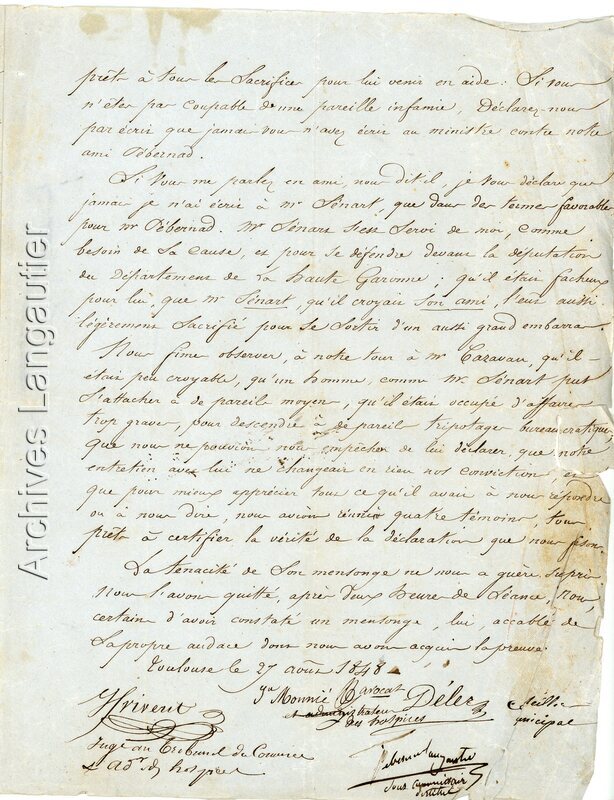 prêts à tous les Sacrifices pour lui venir en aide. Si vous
n'êtes pas coupable d'une pareille infamie, Déclarez-nous
par écrit que jamais vous n'avez écrit au ministre contre notre
ami Débernad.
Si vous me parlez en ami, nous dit-il, je vous déclare que
jamais je n'ai écrit à Mr Sénart, que dans des termes favorables
pour Mr Débernad. Mr Sénart s'est Servi de moi, comme
besoin de Sa Cause, et pour se défendre devant la députation
du Département de La Haute Garonne ; qu'il était facheux
pour lui, que Mr Sénart, qu'il croyait Son ami, l'eut aussi
légèrement Sacrifié pour se Sortir d'un aussi grand embarras
Nous fimes observer, à notre tour à Mr Cazavan, qu'il-
était peu croyable, qu'un homme, comme Mr Sénart put
S'attacher à de pareils moyens, qu'il était occupé d'affaires
trop graves, pour descendre à de pareils tripotages bureaucratiques
que nous ne pouvions nous empêcher de lui déclarer, que notre
entretien avec lui ne changeait en rien nos convictions, et
que pour mieux apprécier tous ce qu'il avait à nous répondre
ou à nous dire, nous avions réunis quatre témoins, tous
prêts à certifier la vérité de la déclaration que nous faisons
La tenacité de Son mensonge ne nous a guère Surpris
Nous l'avons quitté, après deux heures de Séance, Nous,
certains d'avoir constaté un mensonge, lui, accablé de
Sa propre audace dont nous avons acquis la preuve.
Toulouse le 27 août 1848
Mounié avocat Déler
et administrateur
des hospices
municipal
Juge au Tribunal de Commerce
& Adr des hospices
Sous Commissaire
destitué
Archives Langautier